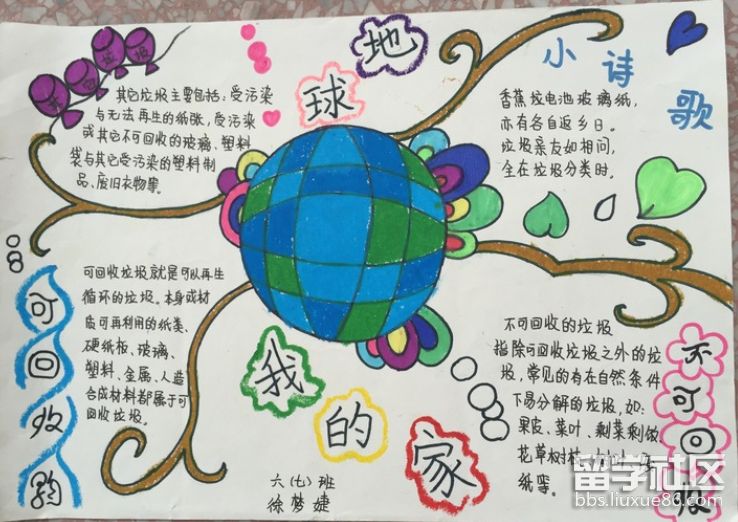 其它垃圾
地
球
我
的
家
小诗歌
其它垃圾主要包括：受污染
与无法再生的纸张，受污染
或其它不可回收的玻璃、塑料
袋与其它受污染的塑料制
品、废旧衣物里。
香蕉垃电池玻璃纸，
亦有各自返乡日。
垃圾亲友如相问，
全在垃圾分类时。
可回收
可回收垃圾就是可以再生
循环的垃圾。本身或材
质可再利用的纸类、
硬纸板、玻璃、
塑料、金属、人造
合成材料都属于可
回收垃圾。
不可回收
不可回收的垃圾
指除可回收垃圾之外的垃
圾，常见的有在自然条件
下易分解的垃圾，如：
果皮、菜叶、剩菜剩饭、
花草树
纸等。
六(七)班
徐梦婕
留学社区
bbs.liuxue86.com